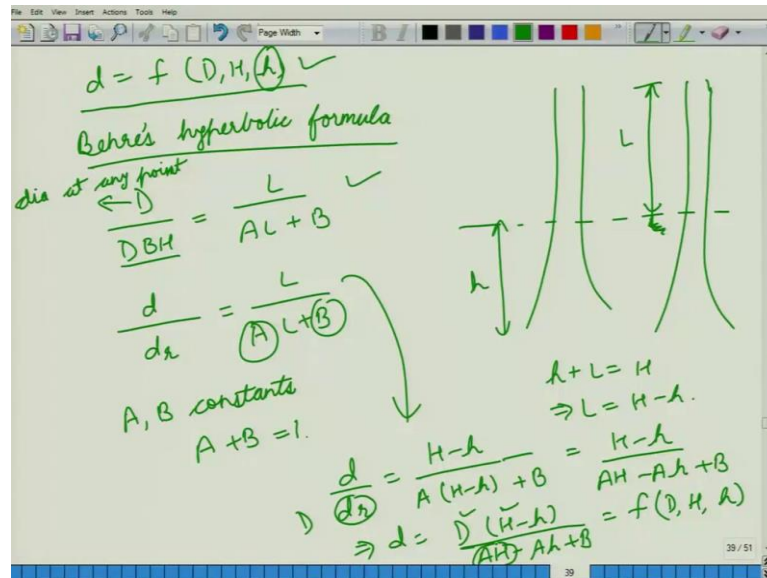 File Edit View Insert Actions Tools Help
Page Width
B I
d = f (D, H, h) ✓
Behre's hyperbolic formula
dia at any point
← D / DBH = L / AL + B ✓
d / dr = L / A L + B
A, B constants
A + B = 1.
L
h
h + L = H
⇒ L = H - h.
d / dr = H - h / A (H - h) + B = H - h / AH - Ah + B
D
⇒ d = D (H - h) / AH - Ah + B = f (D, H, h)
39 / 51
39